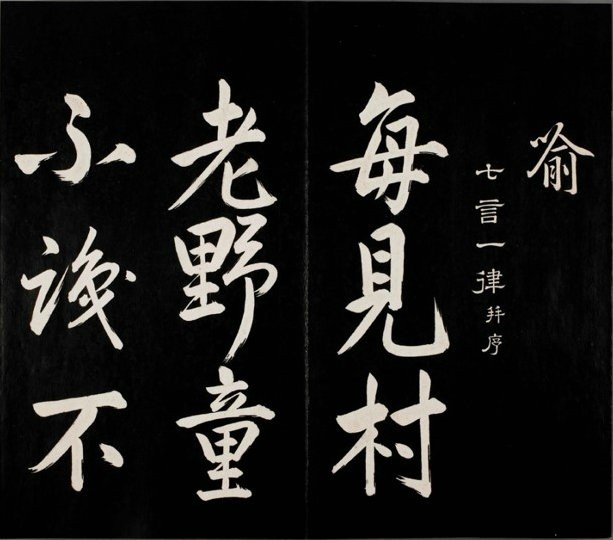 喻
七言一律并序
每見村
老野童
不識不